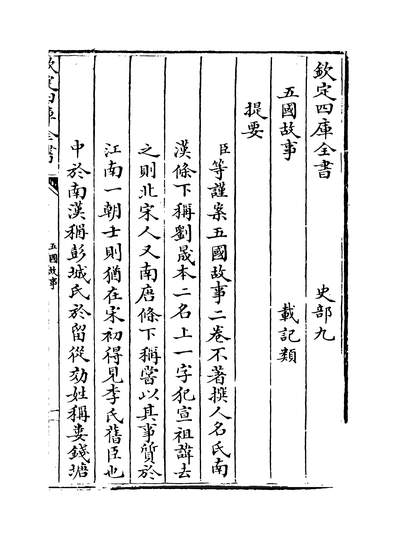 欽定四庫全書　史部九
五國故事　載記類
提要
臣等謹案五國故事二卷不著撰人名氏南
漢條下稱劉晟本二名上一字犯宣祖諱去
之則北宋人又南唐條下稱嘗以其事質於
江南一朝士則猶在宋初得見李氏舊臣也
中於南漢稱彭城氏於留從効姓稱婁錢塘
欽定四庫全書
五國故事